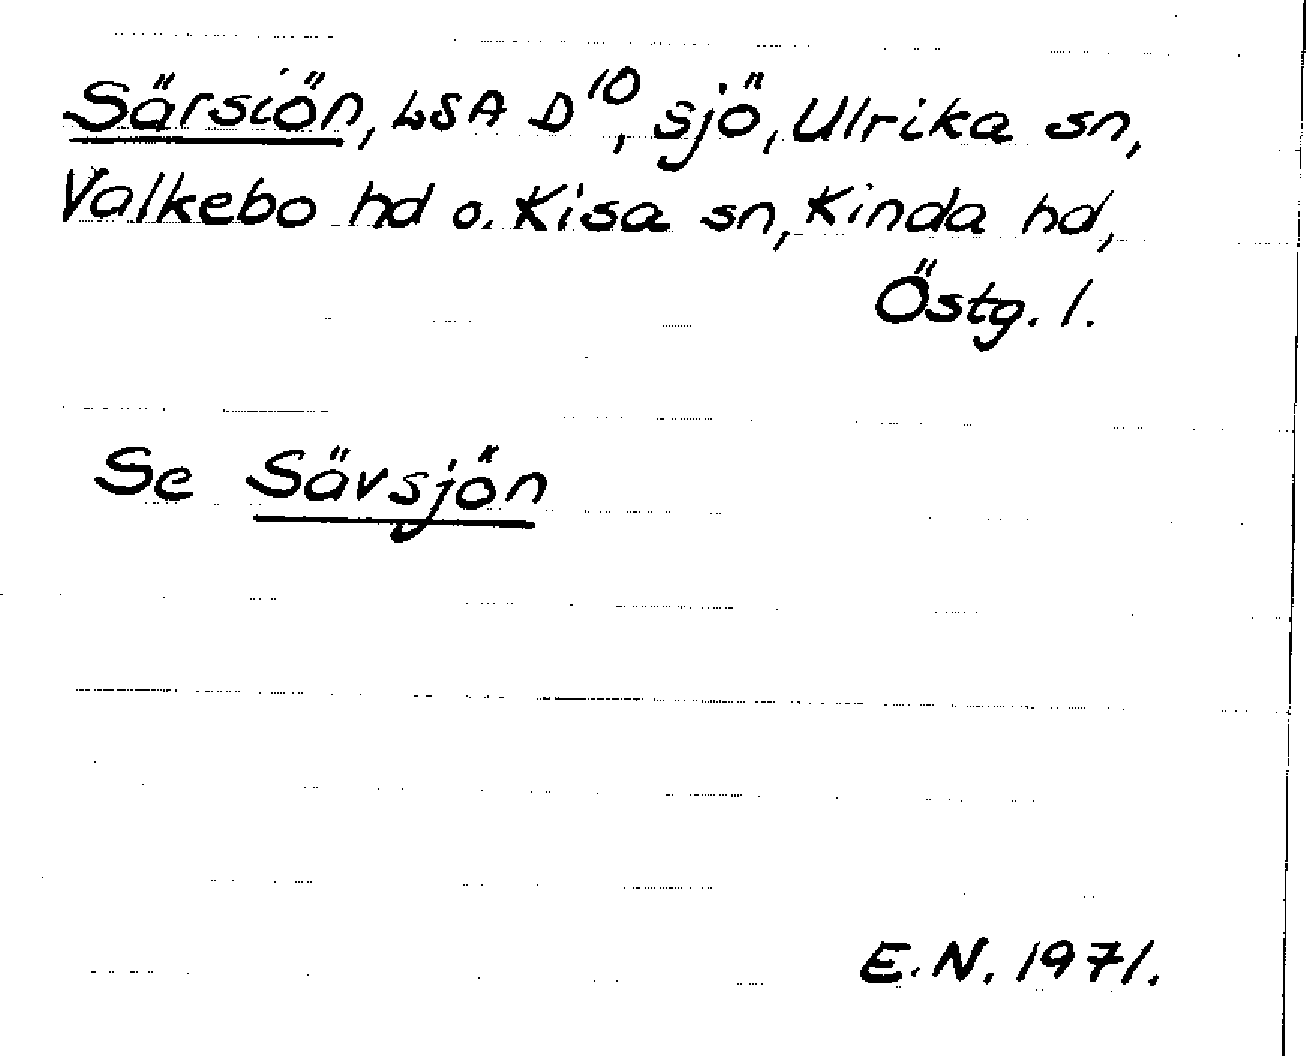 Särsiön, LSA D10, sjö, Ulrika sn,
Valkebo hd o. Kisa sn, Kinda hd,
Östg. l.
Se Sävsjön
E.N. 1971.